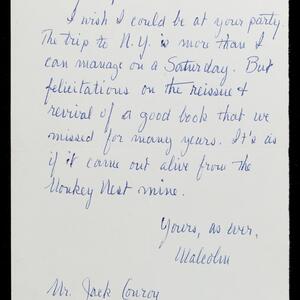 I wish I could be at your party.
The trip to N.Y. is more than I
can manage on a Saturday. But
felicitations on the reissue &
revival of a good book that we
missed for many years. It's as
if it came out alive from the
Monkey Nest mine.
Yours, as ever,
Malcolm
Mr. Jack Conroy